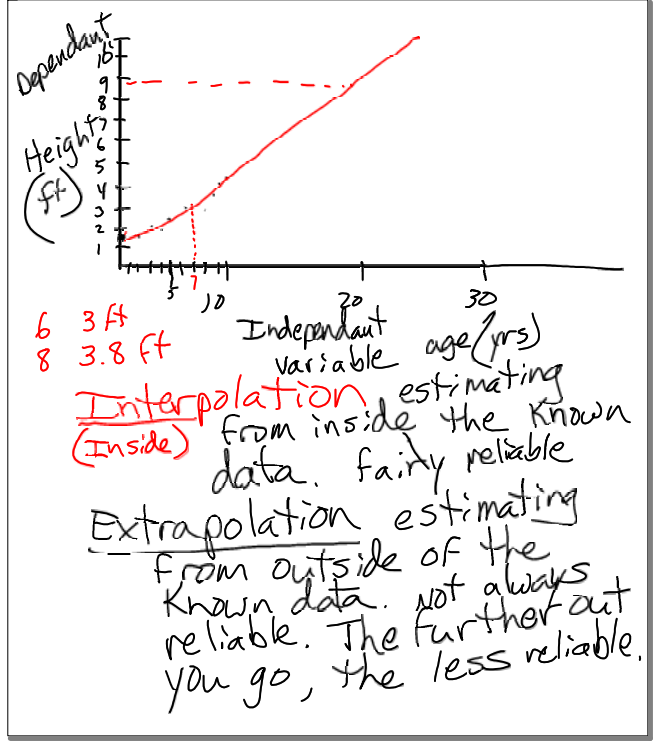 Dependant
Height
(ft)
10
9
8
7
6
5
4
3
2
1
5
7
10
20
30
Independant
variable
age (yrs)
6 3 ft
8 3.8 ft
Interpolation estimating
(Inside) from inside the known
data. fairly reliable
Extrapolation estimating
from outside of the
known data. Not always
reliable. The further out
you go, the less reliable.